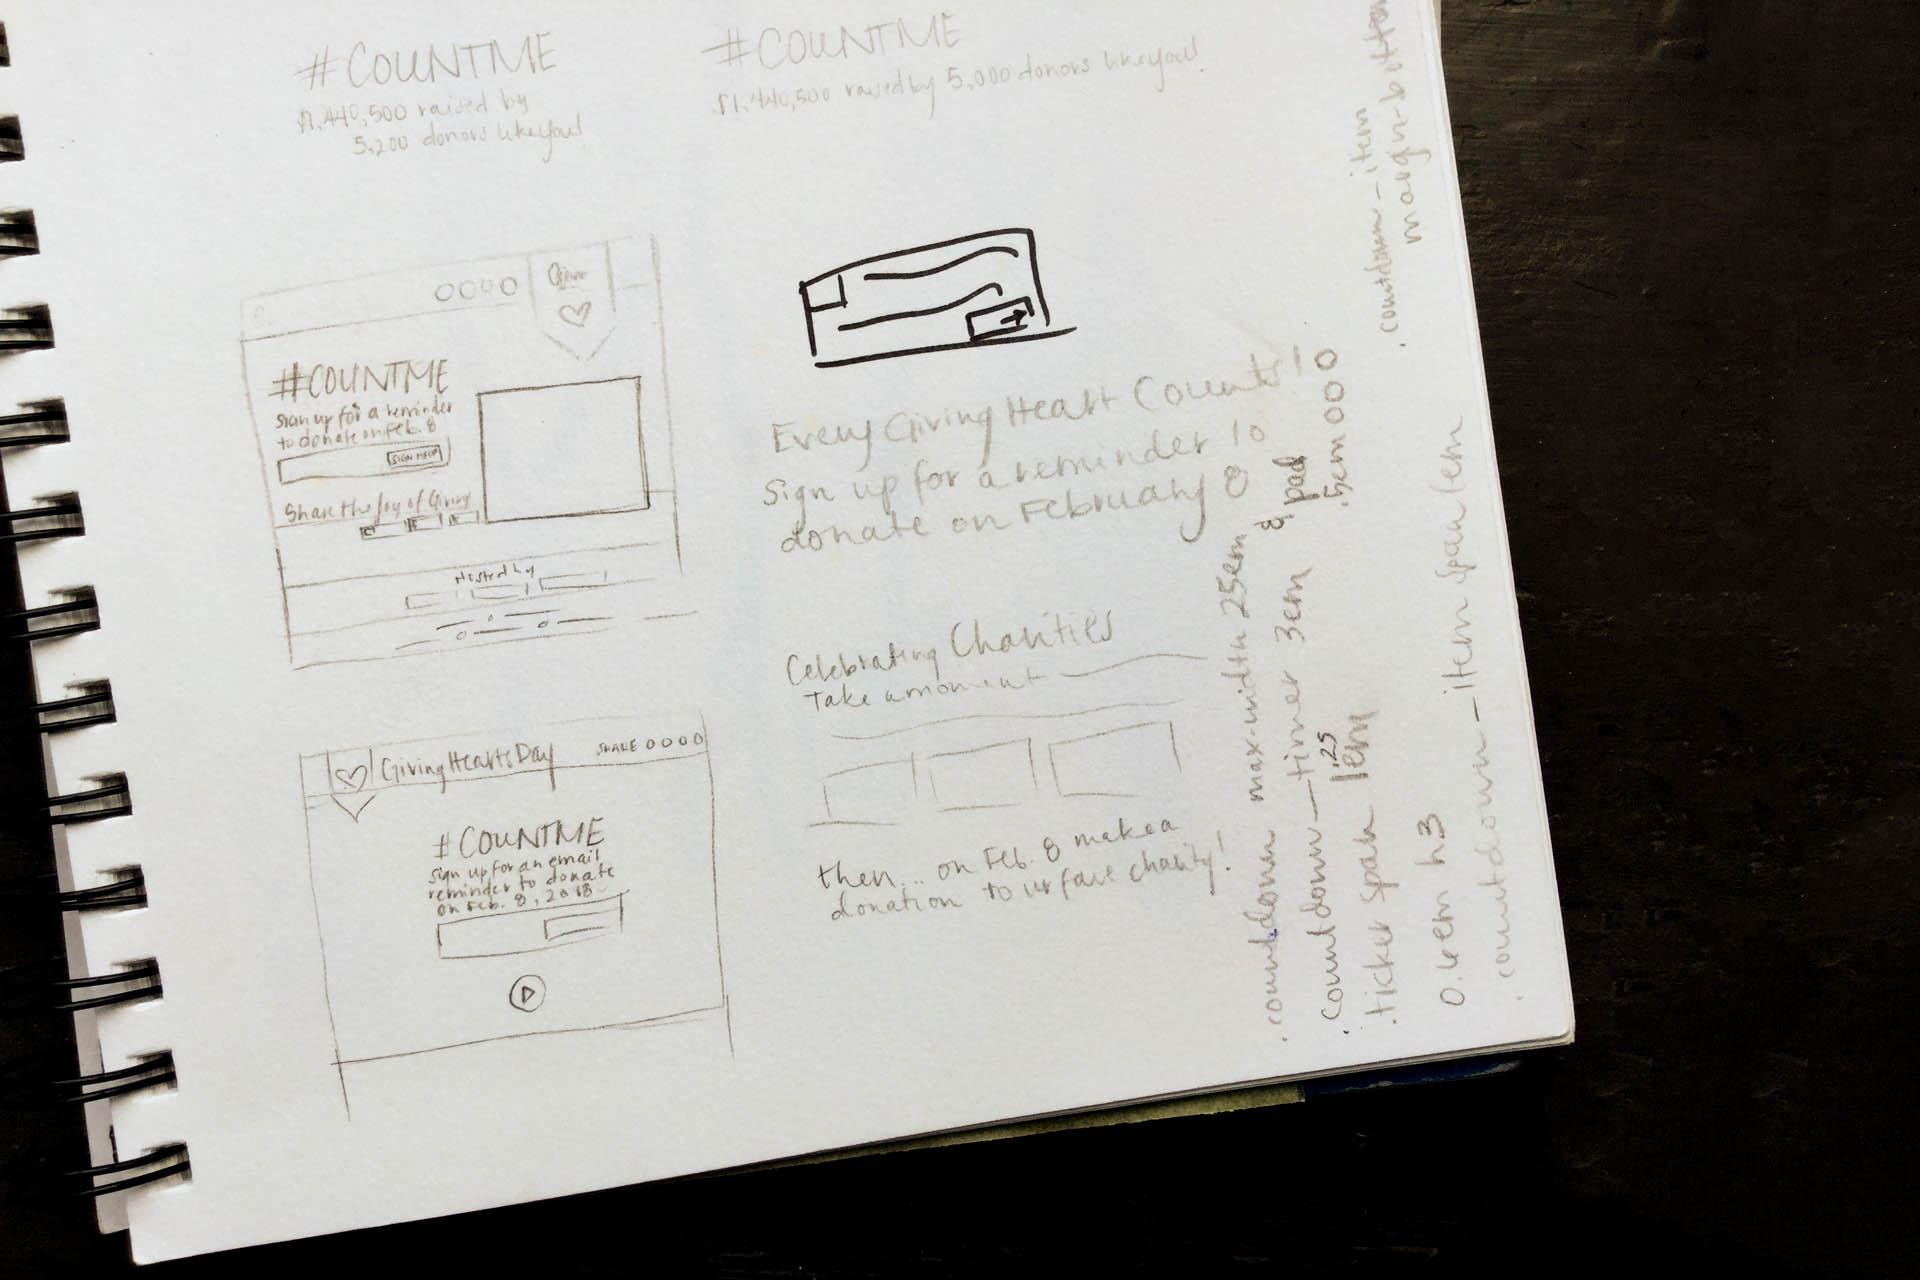 #COUNTME
$1,440,500 raised by
5,200 donors like you!
#COUNTME
$1,440,500 raised by 5,000 donors like you!
#COUNTME
Sign up for a reminder
to donate on Feb. 8
SIGN ME UP
Share the Joy of Giving
Hosted by
Every Giving Heart Counts!
Sign up for a reminder to
donate on February 8
Celebrating Charities
Take a moment
then... on Feb. 8 make a
donation to ur fave charity!
Giving Hearts Day
SHARE
#COUNTME
Sign up for an email
reminder to donate
on Feb. 8, 2018
.countdown max-width 25em
.countdown-timer 3em & pad
.ticker span 1em .25 .5em 000
0.6em h3
.countdown-item span 1em
.countdown-item
margin-bottom